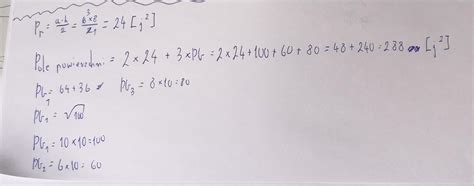 Pᵣ = a·h/2 = 6³×8/2₁ = 24 [j²]
Pole powierzchni = 2×24 + 3×Pb = 2×24+100+60+80 = 48+240=288 [j²]
Pb₁ = 64+36 Pb₃ = 8×10=80
Pb₁ = √100
Pb₁ = 10×10=100
Pb₂ = 6×10=60